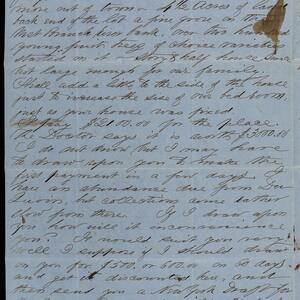 more out of town. 4th Acres of land
back end of the lot a fine grove on the
West Branch river bank. Over two hundred
young fruit trees of choice varieties
started on it - Story & half house
not large enough for our family.
Shall add a little to the side of the house
just to increase the size of one bed room.
just your house was fixed.
$2000.00 for the place
the Doctor says it is worth $3000.00
I do not know but I may have
to draw upon you to make the
first payment in a few days. I
have an abundance due from
but collections come rather
slow from there. If I draw upon
you how will it inconvenience
you? It would suit you as
well I suppose if I should draw
on you for $500. or 600. on 60 days
and get it discounted here, and
then send you a New York Draft for